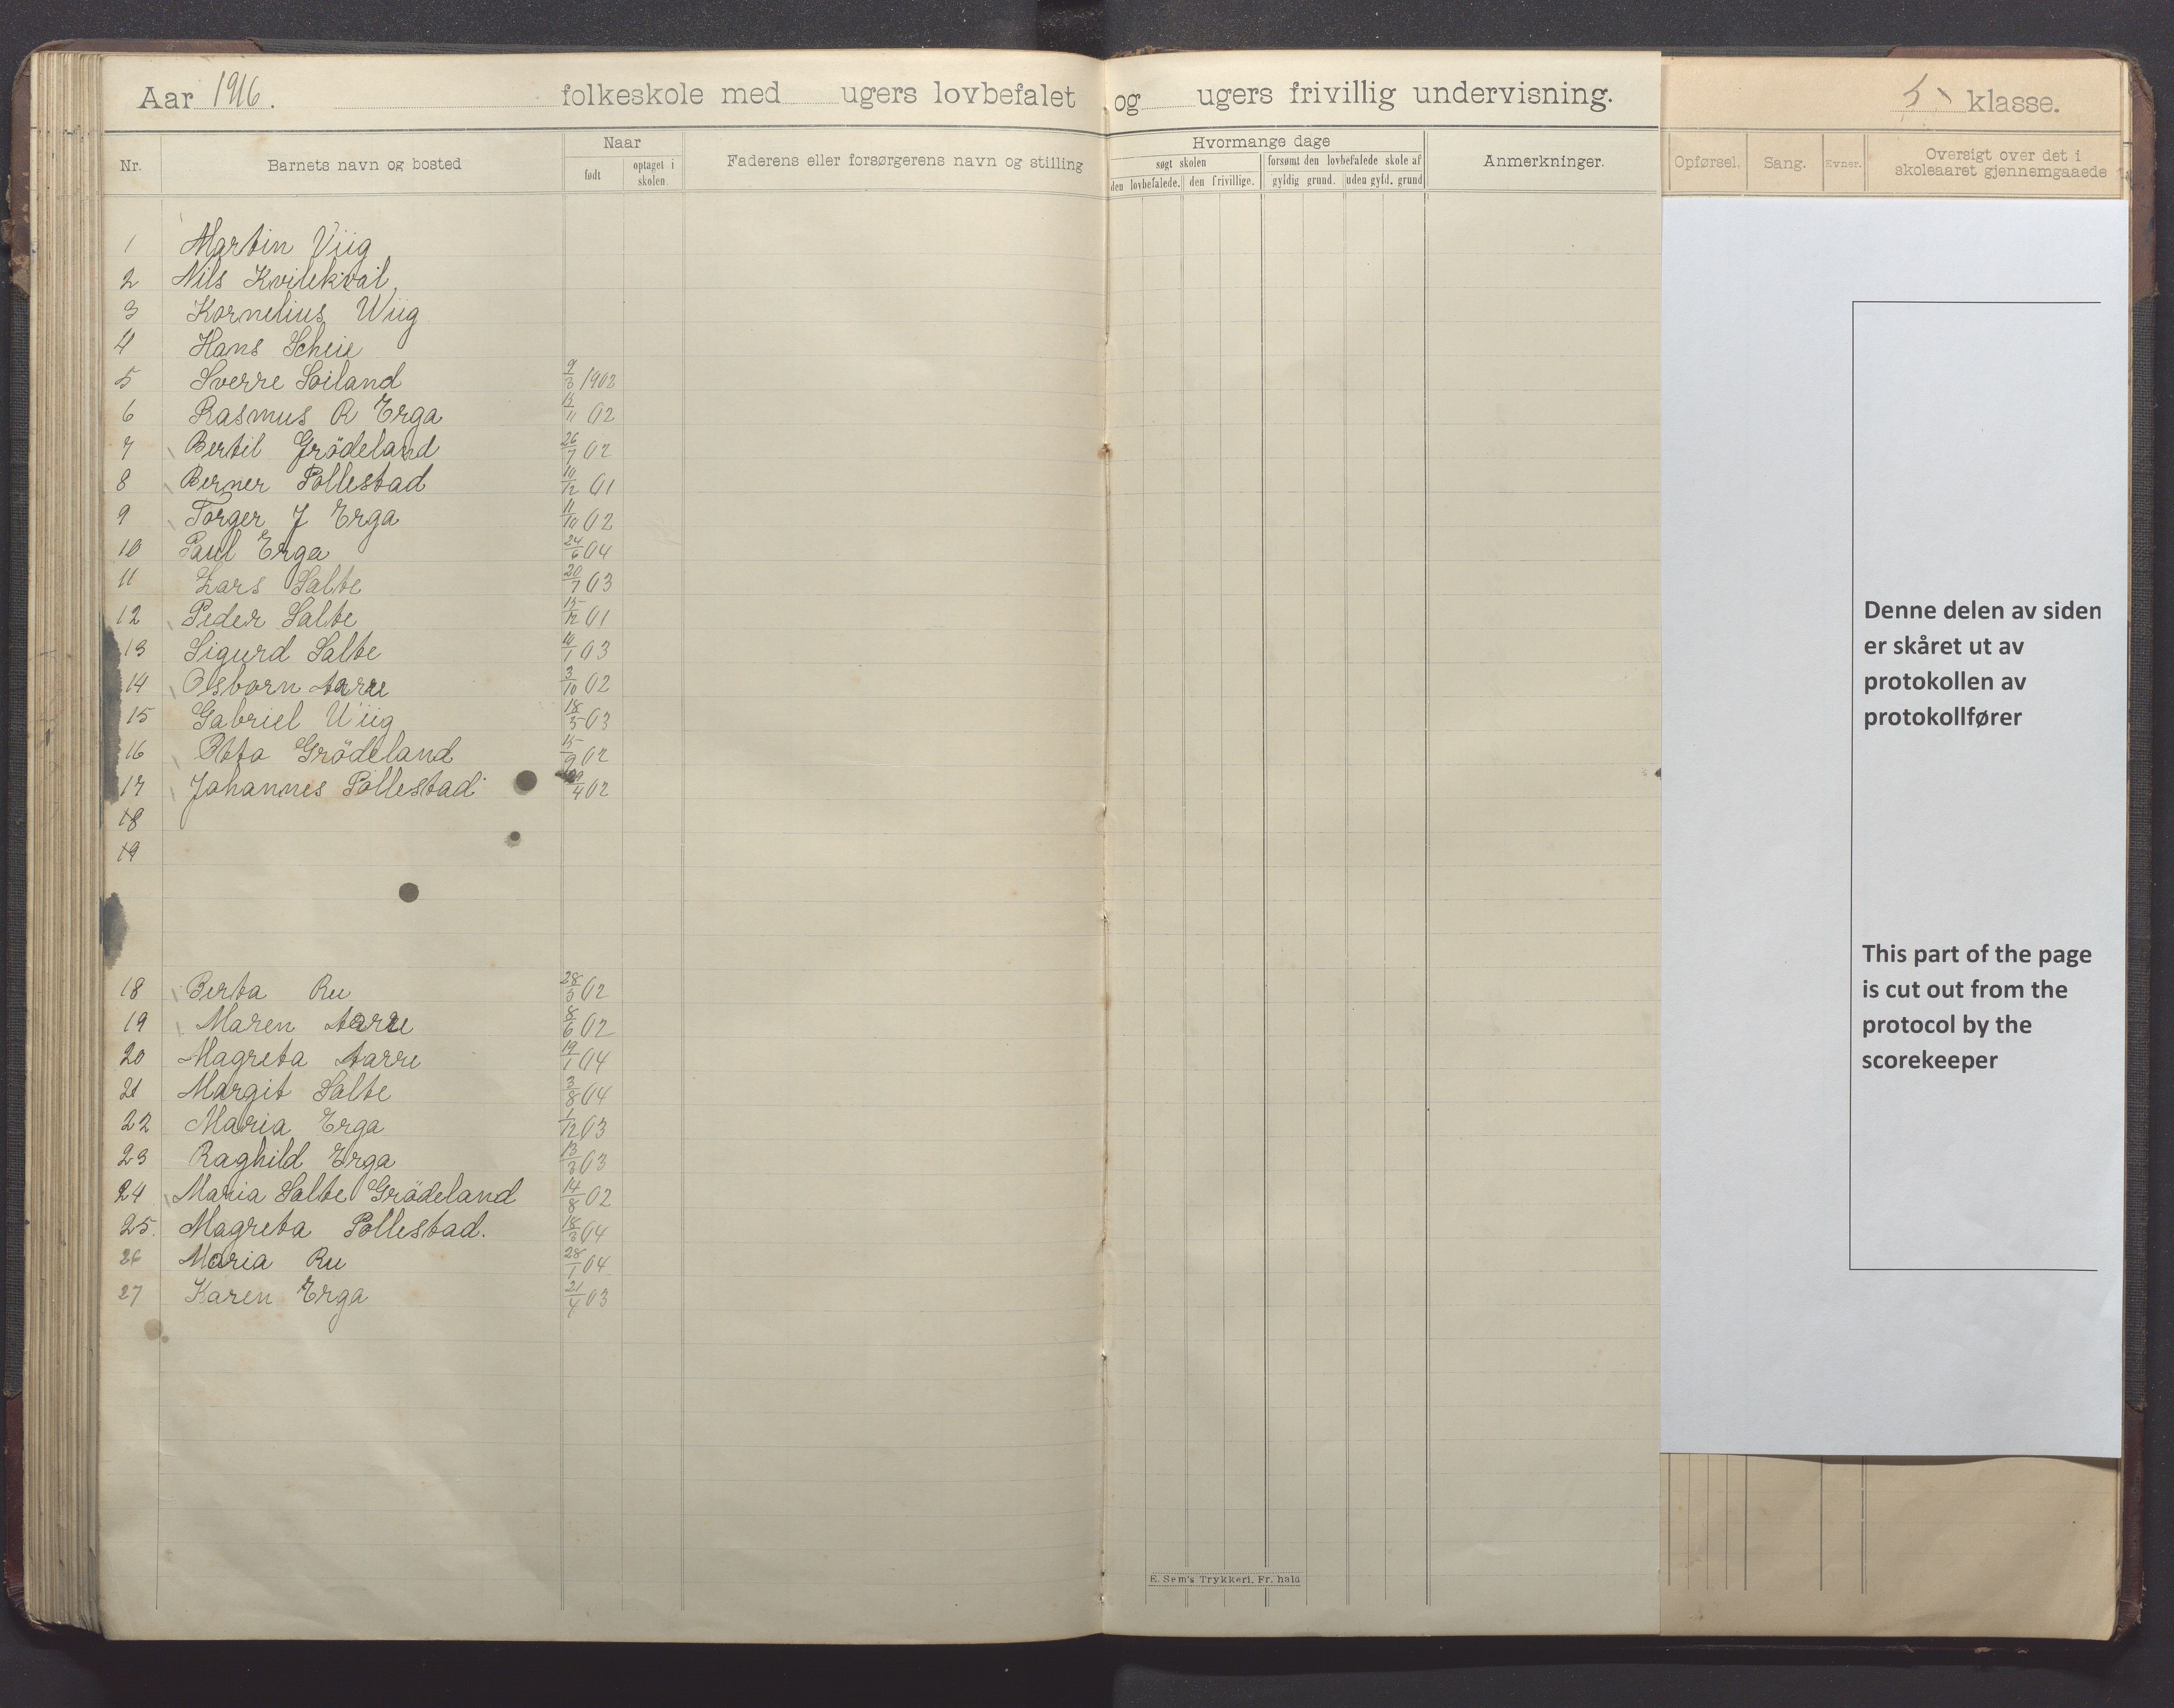 Aar 1916. folkeskole med ugers lovbefalet og ugers frivillig undervisning. 5 klasse.
Nr. Barnets navn og bosted Naar født optaget i skolen. Faderens eller forsørgerens navn og stilling Hvormange dage søgt skolen den lovbefalede. den frivillige. forsømt den lovbefalede skole af gyldig grund. uden gyld. grund Anmerkninger. Opførsel. Sang. Evner. Oversigt over det i skoleaaret gjennemgaaede
1 Martin Viig
2 Nils Kvilekval
3 Kornelius Wiig
4 Hans Scheie
5 Sverre Soiland 9/3 1902
6 Rasmus R Erga 11/11 02
7 Bertil Grödeland 26/7 02
8 Berner Pollestad 10/12 01
9 Torger J Erga 11/10 02
10 Paul Erga 24/6 04
11 Lars Salte 20/7 03
12 Peder Salte 15/12 01
13 Sigurd Salte 10/1 03
14 Osborn Aarre 3/10 02
15 Gabriel Wiig 18/5 03
16 Otto Grödeland 15/9 02
17 Johannes Pollestad /4 02
18
19
18 Berta Ru 28/5 02
19 Maren Aarre 8/6 02
20 Magreta Aarre 19/1 04
21 Margit Salte 3/8 04
22 Maria Erga 1/12 03
23 Raghild Erga 13/3 03
24 Maria Salte Grödeland 14/8 02
25. Magreta Pollestad. 18/3 04
26 Maria Ru 28/1 04
27 Karen Erga 21/4 03
Denne delen av siden
er skåret ut av
protokollen av
protokollfører
This part of the page
is cut out from the
protocol by the
scorekeeper
E. Sem's Trykkeri, Fr. hald